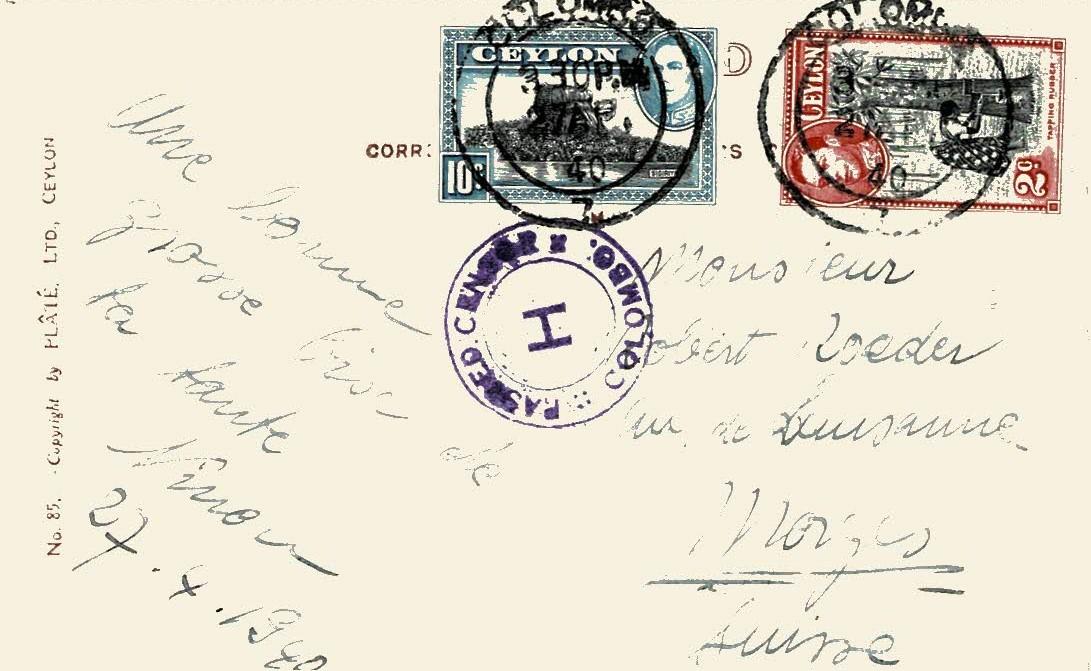 COLOMBO
3 30 P.M
27 AP.
40
CEYLON
10c
COLOM
40
CEYLON
TAPPING RUBBER
2c
CORR:
D
TS
PASSED CENSOR H COLOMBO.
No. 85. - Copyright by PLÂTÉ, LTD, CEYLON
Une bonne
grosse bise de
ta tante
Ninon
27.4.1940
Monsieur
Robert Roeder
Av. de Lausanne
Morges
Suisse